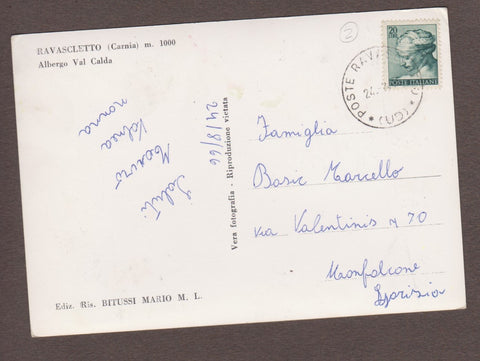 RAVASCLETTO (Carnia) m. 1000
Albergo Val Calda
24/8/66
Saluti
nonna
Ediz. Ris. BITUSSI MARIO M. L.
Vera fotografia - Riproduzione vietata
POSTE ITALIANE
POSTE RAVA
(UD)
24.
Famiglia
Basic Marcello
via Valentinis N 70
Monfalcone